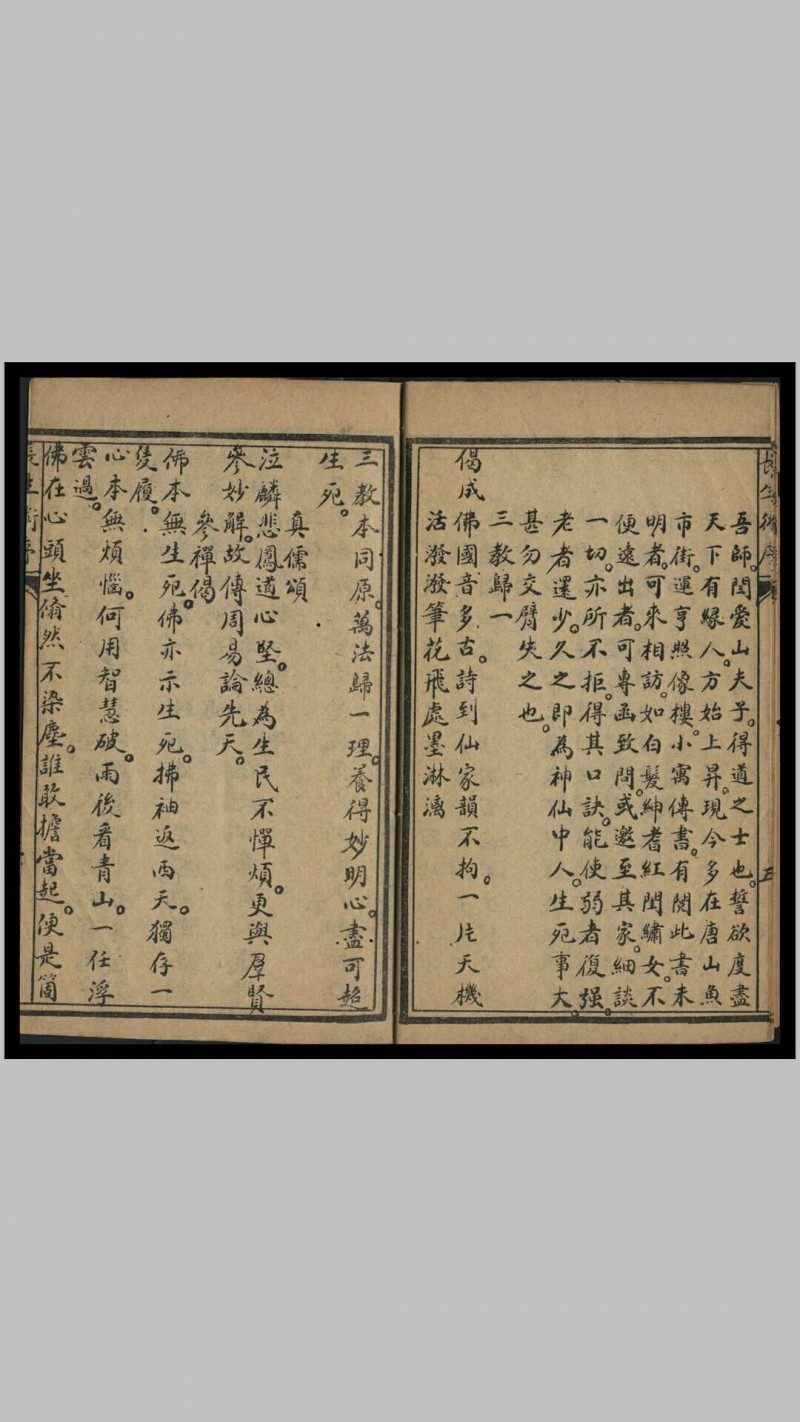 吾師。閏愛山夫子。得道之士也。誓欲度盡
天下有緣人。方始上昇。現今多在唐山魚
市街。運亨照像樓。小寓傳書。有閱此書未
明者。可來相訪。如白髮紳耆。紅閨繡女。不
便遠出者。可專函致問。或邀至其家。細談
一切。亦所不拒。得其口訣。能使弱者復强。
老者還少。久之即為神仙中人。生死事大。
甚勿交臂失之也。
三教歸一
偈成佛國音多古。詩到仙家韻不拘。一片天機
活潑潑筆花飛處墨淋漓
三教本同原。萬法歸一理。養得妙明心。盡可超
生死。
真儒頌
泣麟悲鳳道心堅。總為生民不憚煩。更與羣賢
參妙解。故傳周易論先天。
參禪偈
佛本無生死。佛亦示生死。拂袖返西天。獨存一
隻履。
心本無煩惱。何用智慧破。雨後看青山。一任浮
雲過。
佛在心頭坐。翛然不染塵。誰敢擔當起。便是箇
長生術序